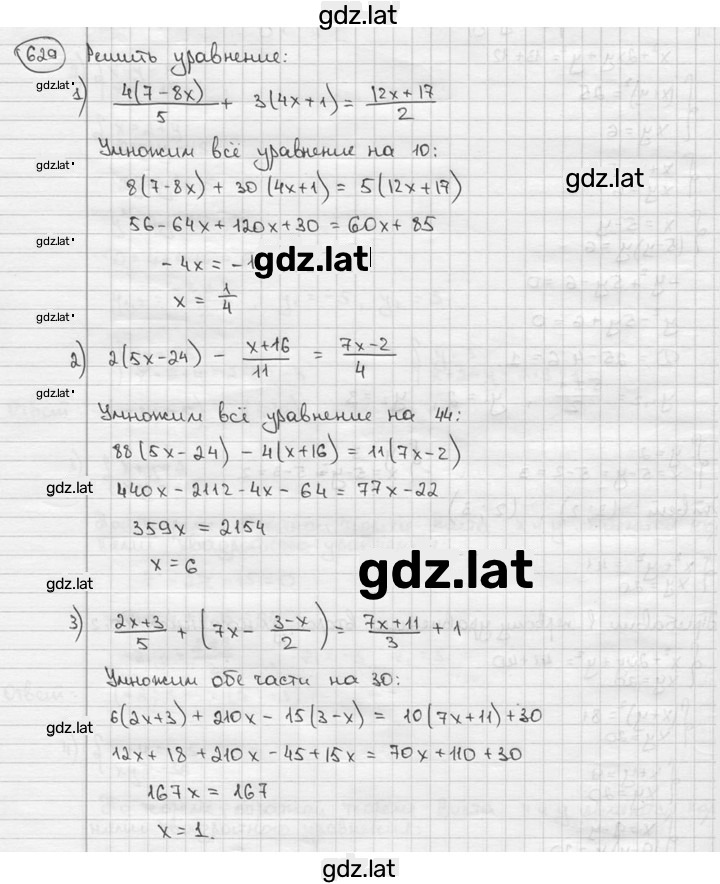 gdz.lat
629 Решить уравнение:
gdz.lat
1) 4(7-8x)/5 + 3(4x+1) = 12x+17/2
Умножим всё уравнение на 10:
gdz.lat
8(7-8x) + 30(4x+1) = 5(12x+17)
gdz.lat
56-64x+120x+30 = 60x+85
gdz.lat
-4x = -1
gdz.lat
x = 1/4
gdz.lat
2) 2(5x-24) - x+16/11 = 7x-2/4
gdz.lat
Умножим всё уравнение на 44:
88(5x-24) - 4(x+16) = 11(7x-2)
gdz.lat
440x-2112-4x-64 = 77x-22
359x = 2154
x = 6
gdz.lat
gdz.lat
3) 2x+3/5 + (7x - 3-x/2) = 7x+11/3 + 1
Умножим обе части на 30:
6(2x+3) + 210x - 15(3-x) = 10(7x+11)+30
gdz.lat
12x+18+210x-45+15x = 70x+110+30
167x = 167
x = 1.
gdz.lat